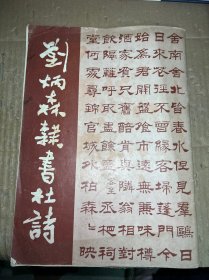 舍南舍北皆春水但見羣鷗日
日來花徑不曾緣客掃蓬門今
始為君開盤飧市遠無兼味樽
酒家貧只舊醅肯與鄰翁相對
飲隔籬呼取盡餘杯丞相祠
堂何處尋錦官城外柏森森映
劉炳森隸書杜詩